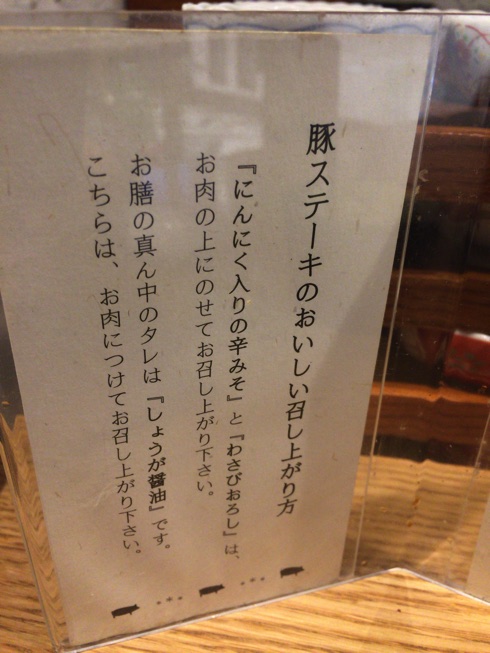 豚ステーキのおいしい召し上がり方
『にんにく入りの辛みそ』と『わさびおろし』は、
お肉の上にのせてお召し上がり下さい。
お膳の真ん中のタレは『しょうが醤油』です。
こちらは、お肉につけてお召し上がり下さい。